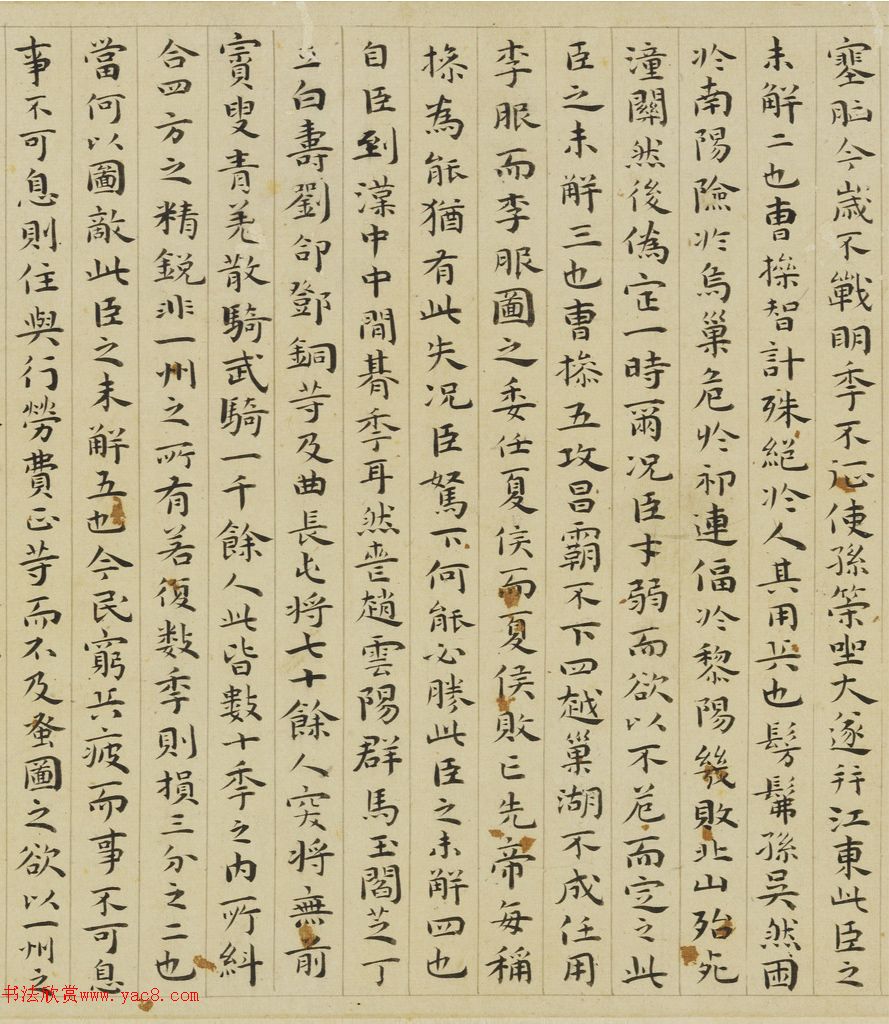 塞胸今歲不戰明季不征使孫策坐大遂并江東此臣之
未解二也曹操智計殊絕於人其用兵也髣髴孫吳然困
於南陽險於烏巢危於祁連偪於黎陽幾敗北山殆死
潼關然後偽定一時爾况臣才弱而欲以不危而定之此
臣之未解三也曹操五攻昌霸不下四越巢湖不成任用
李服而李服圖之委任夏侯而夏侯敗亡先帝每稱
操為能猶有此失况臣駑下何能必勝此臣之未解四也
自臣到漢中中間朞季耳然喪趙雲陽群馬玉閻芝丁
立白壽劉郃鄧銅等及曲長屯將七十餘人突將無前
賨叟青羌散騎武騎一千餘人此皆數十季之內所糾
合四方之精銳非一州之所有若復數季則損三分之二也
當何以圖敵此臣之未解五也今民窮兵疲而事不可息
事不可息則住與行勞費正等而不及蚤圖之欲以一州之
书法欣赏www.yac8.com